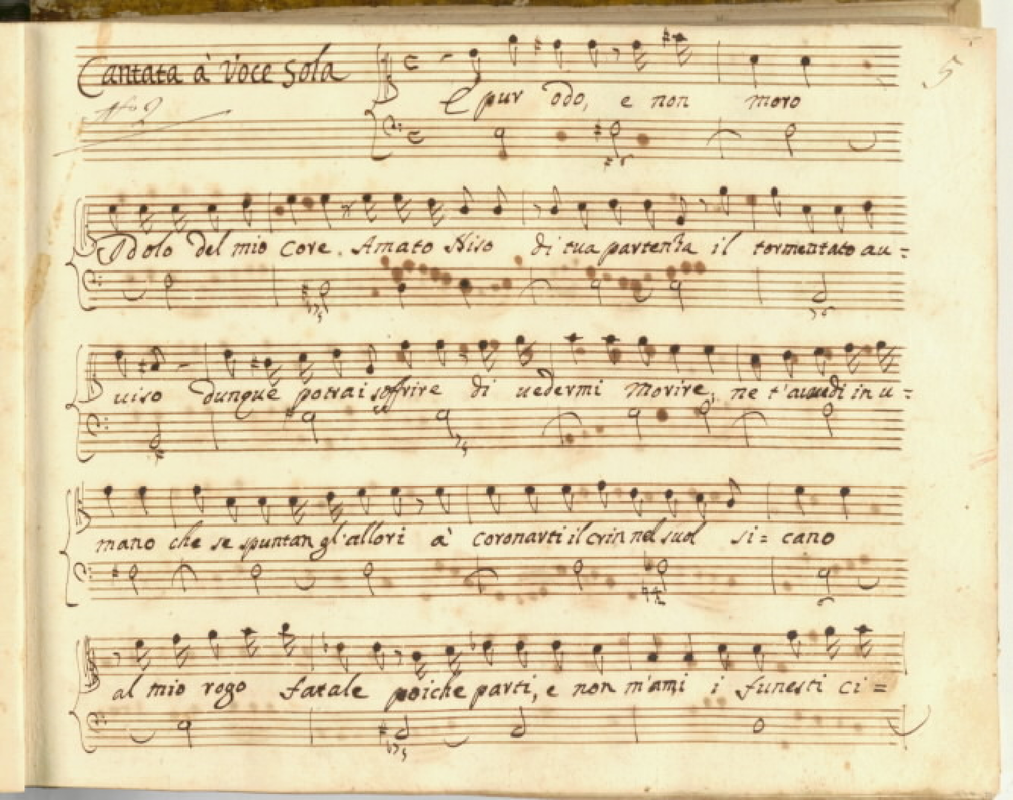 Cantata à Voce Sola
5
E pur odo, e non moro
Idolo del mio Core. Amato Niso di tua partenza il tormentato au=
uiso dunque potrai soffrire di uedermi Morire, ne t'auuedi in u=
mano che se spuntan gl'allori à coronarti il crin nel suol si=cano
al mio rogo fatale poiche parti, e non m'ami i funesti ci=